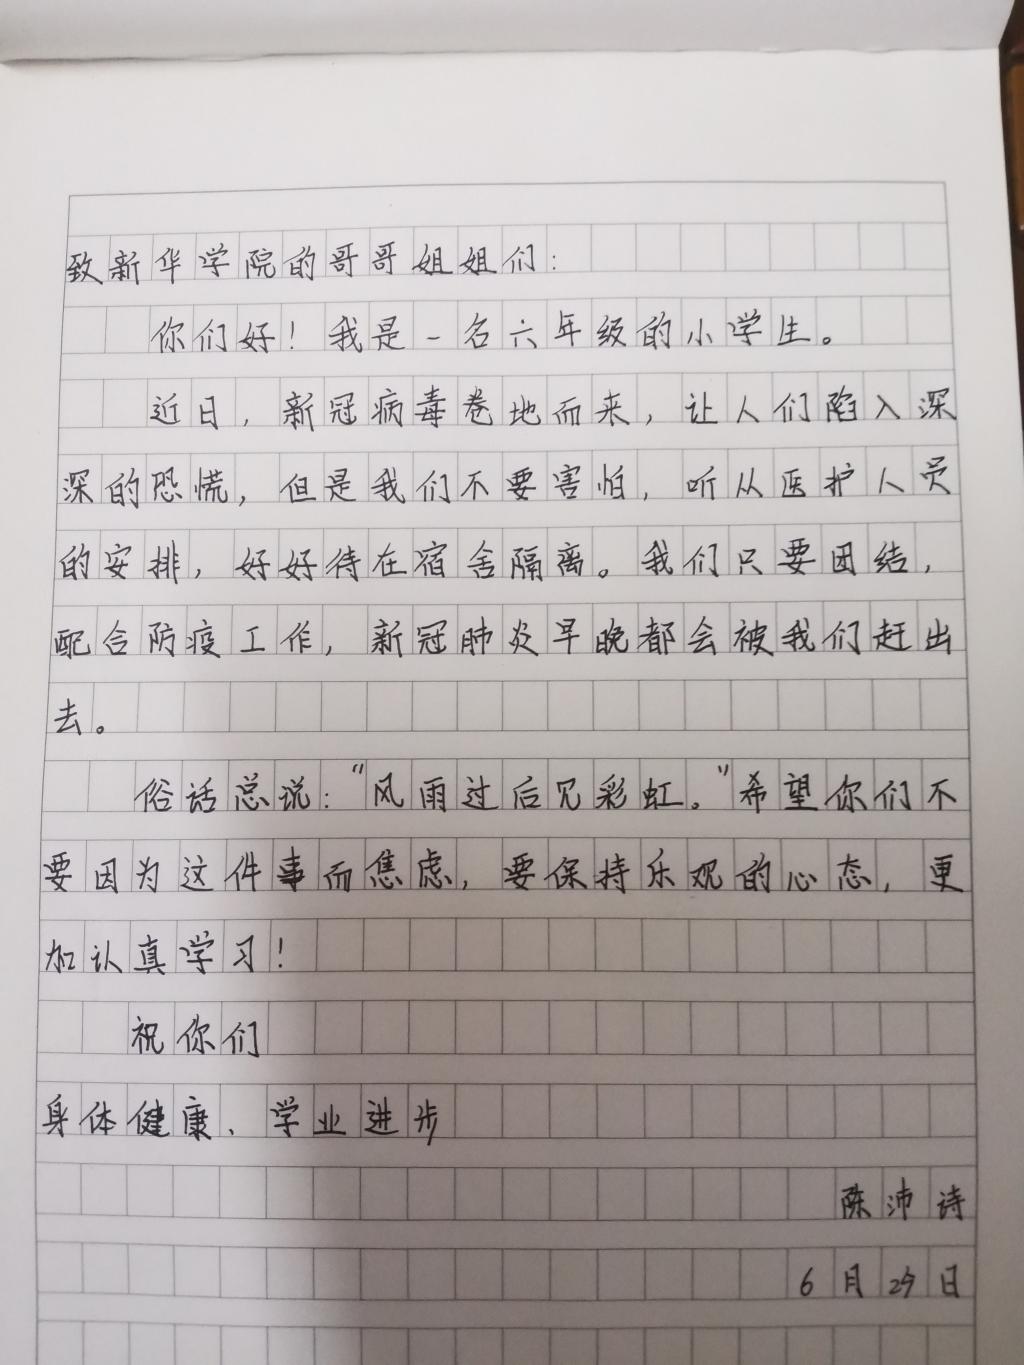 致新华学院的哥哥姐姐们：
你们好！我是一名六年级的小学生。
近日，新冠病毒卷地而来，让人们陷入深
深的恐慌，但是我们不要害怕，听从医护人员
的安排，好好待在宿舍隔离。我们只要团结，
配合防疫工作，新冠肺炎早晚都会被我们赶出
去。
俗话总说：“风雨过后见彩虹。”希望你们不
要因为这件事而焦虑，要保持乐观的心态，更
加认真学习！
祝你们
身体健康、学业进步
陈沛诗
6月29日